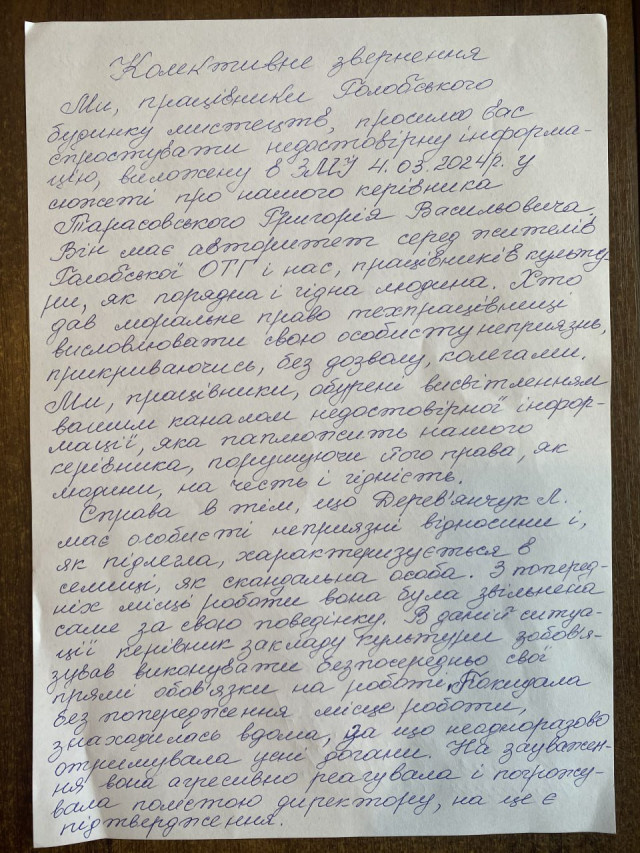 Колективне звернення
Ми, працівники Голобського
будинку мистецтв, просимо вас
спростувати недостовірну інформа-
цію, виложену в ЗМУ 4.03.2024р. у
сюжеті про нашого керівника
Тарасовського Григорія Васильовича.
Він має авторитет серед жителів
Голобської ОТГ і нас, працівників культу-
ри, як порядна і гідна людина. Хто
дав моральне право техпрацівниці
висловлювати свою особисту неприязнь,
прикриваючись, без дозволу, колегами.
Ми, працівники, обурені висвітленням
вашим каналом недостовірної інфор-
мації, яка паплюжить нашого
керівника, порушуючи його права, як
людини, на честь і гідність.
Справа в тім, що Дерев'янчук Л.
має особисті неприязні відносини і,
як підлегла, характеризується в
селищі, як скандальна особа. З поперед-
ніх місць роботи вона була звільнена
саме за свою поведінку. В даній ситуа-
ції керівник закладу культури зобов'я-
зував виконувати безпосередньо свої
прямі обов'язки на роботі. Покидала
без попередження місце роботи,
знаходилась вдома, за що неодноразово
отримувала усні догани. На зауважен-
ня вона агресивно реагувала і погрожу-
вала помстою директору, на це є
підтвердження.